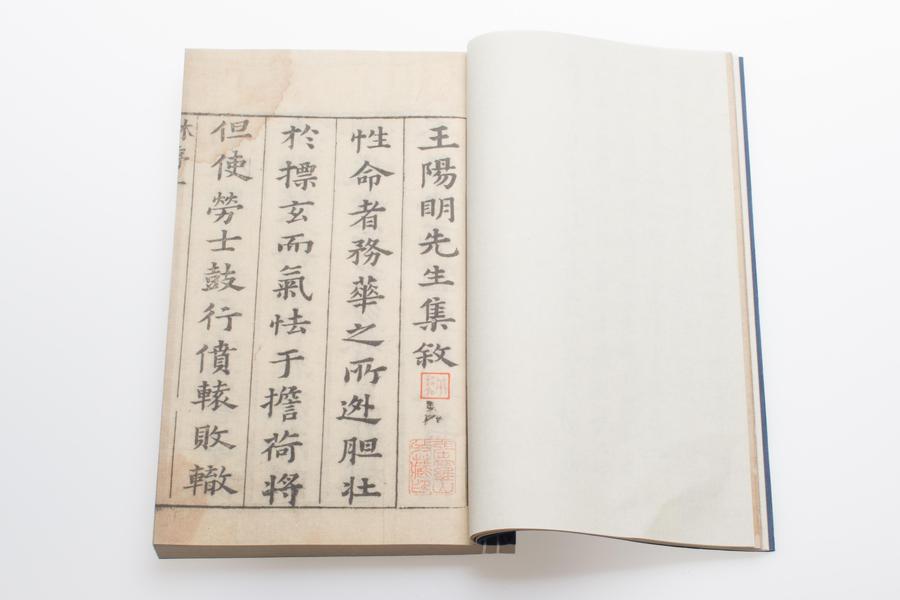 王陽明先生集敘
性命者務華之所逊胆壯
於摽玄而氣怯于擔荷將
但使勞士鼓行僨轅敗轍